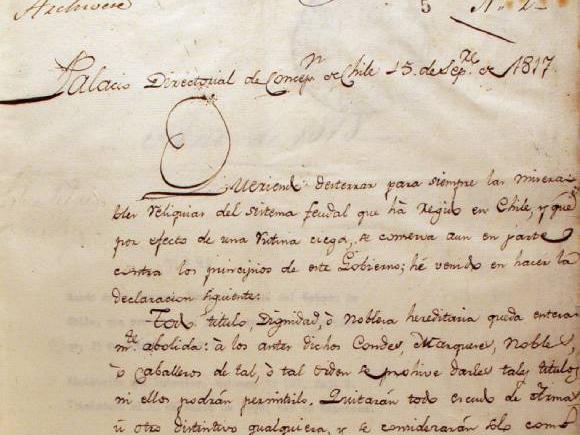 Archivese
5 N. 2
Palacio Directorial de Concepn de Chile 15. de Sepre de 1817
Queriendo desterrar para siempre las misera-
bles Reliquias del sistema feudal que há regido en Chile, y que
por efecto de una Rutina ciega, se conserva aun en parte
contra los principios de este Gobierno; hé venido en hacer la
declaracion siguiente:
Todo titulo, Dignidad, ò Nobleza hereditaria queda entera
mte abolida: à los antes dichos Condes, Marqueses, Nobles,
ò Caballeros de tal, ò tal órden se prohive darles tales titulos
ni ellos podrán permitirlo. Quitarán todo escudo de Armas
ù otro distintivo qualquiera, y se considerarán solo como